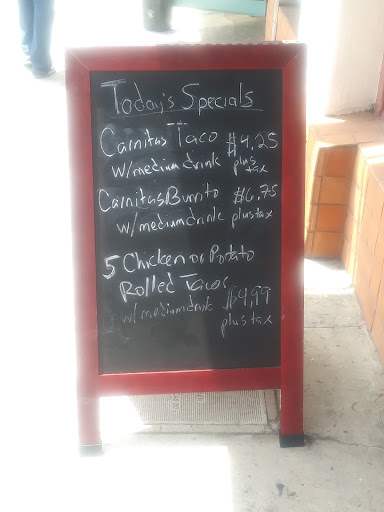 Today's Specials
Carnitas Taco $4.25
w/medium drink plus tax
Carnitas Burrito $6.75
w/medium drink plus tax
5 Chicken or Potato
Rolled Tacos
w/medium drink $4.99
plus tax